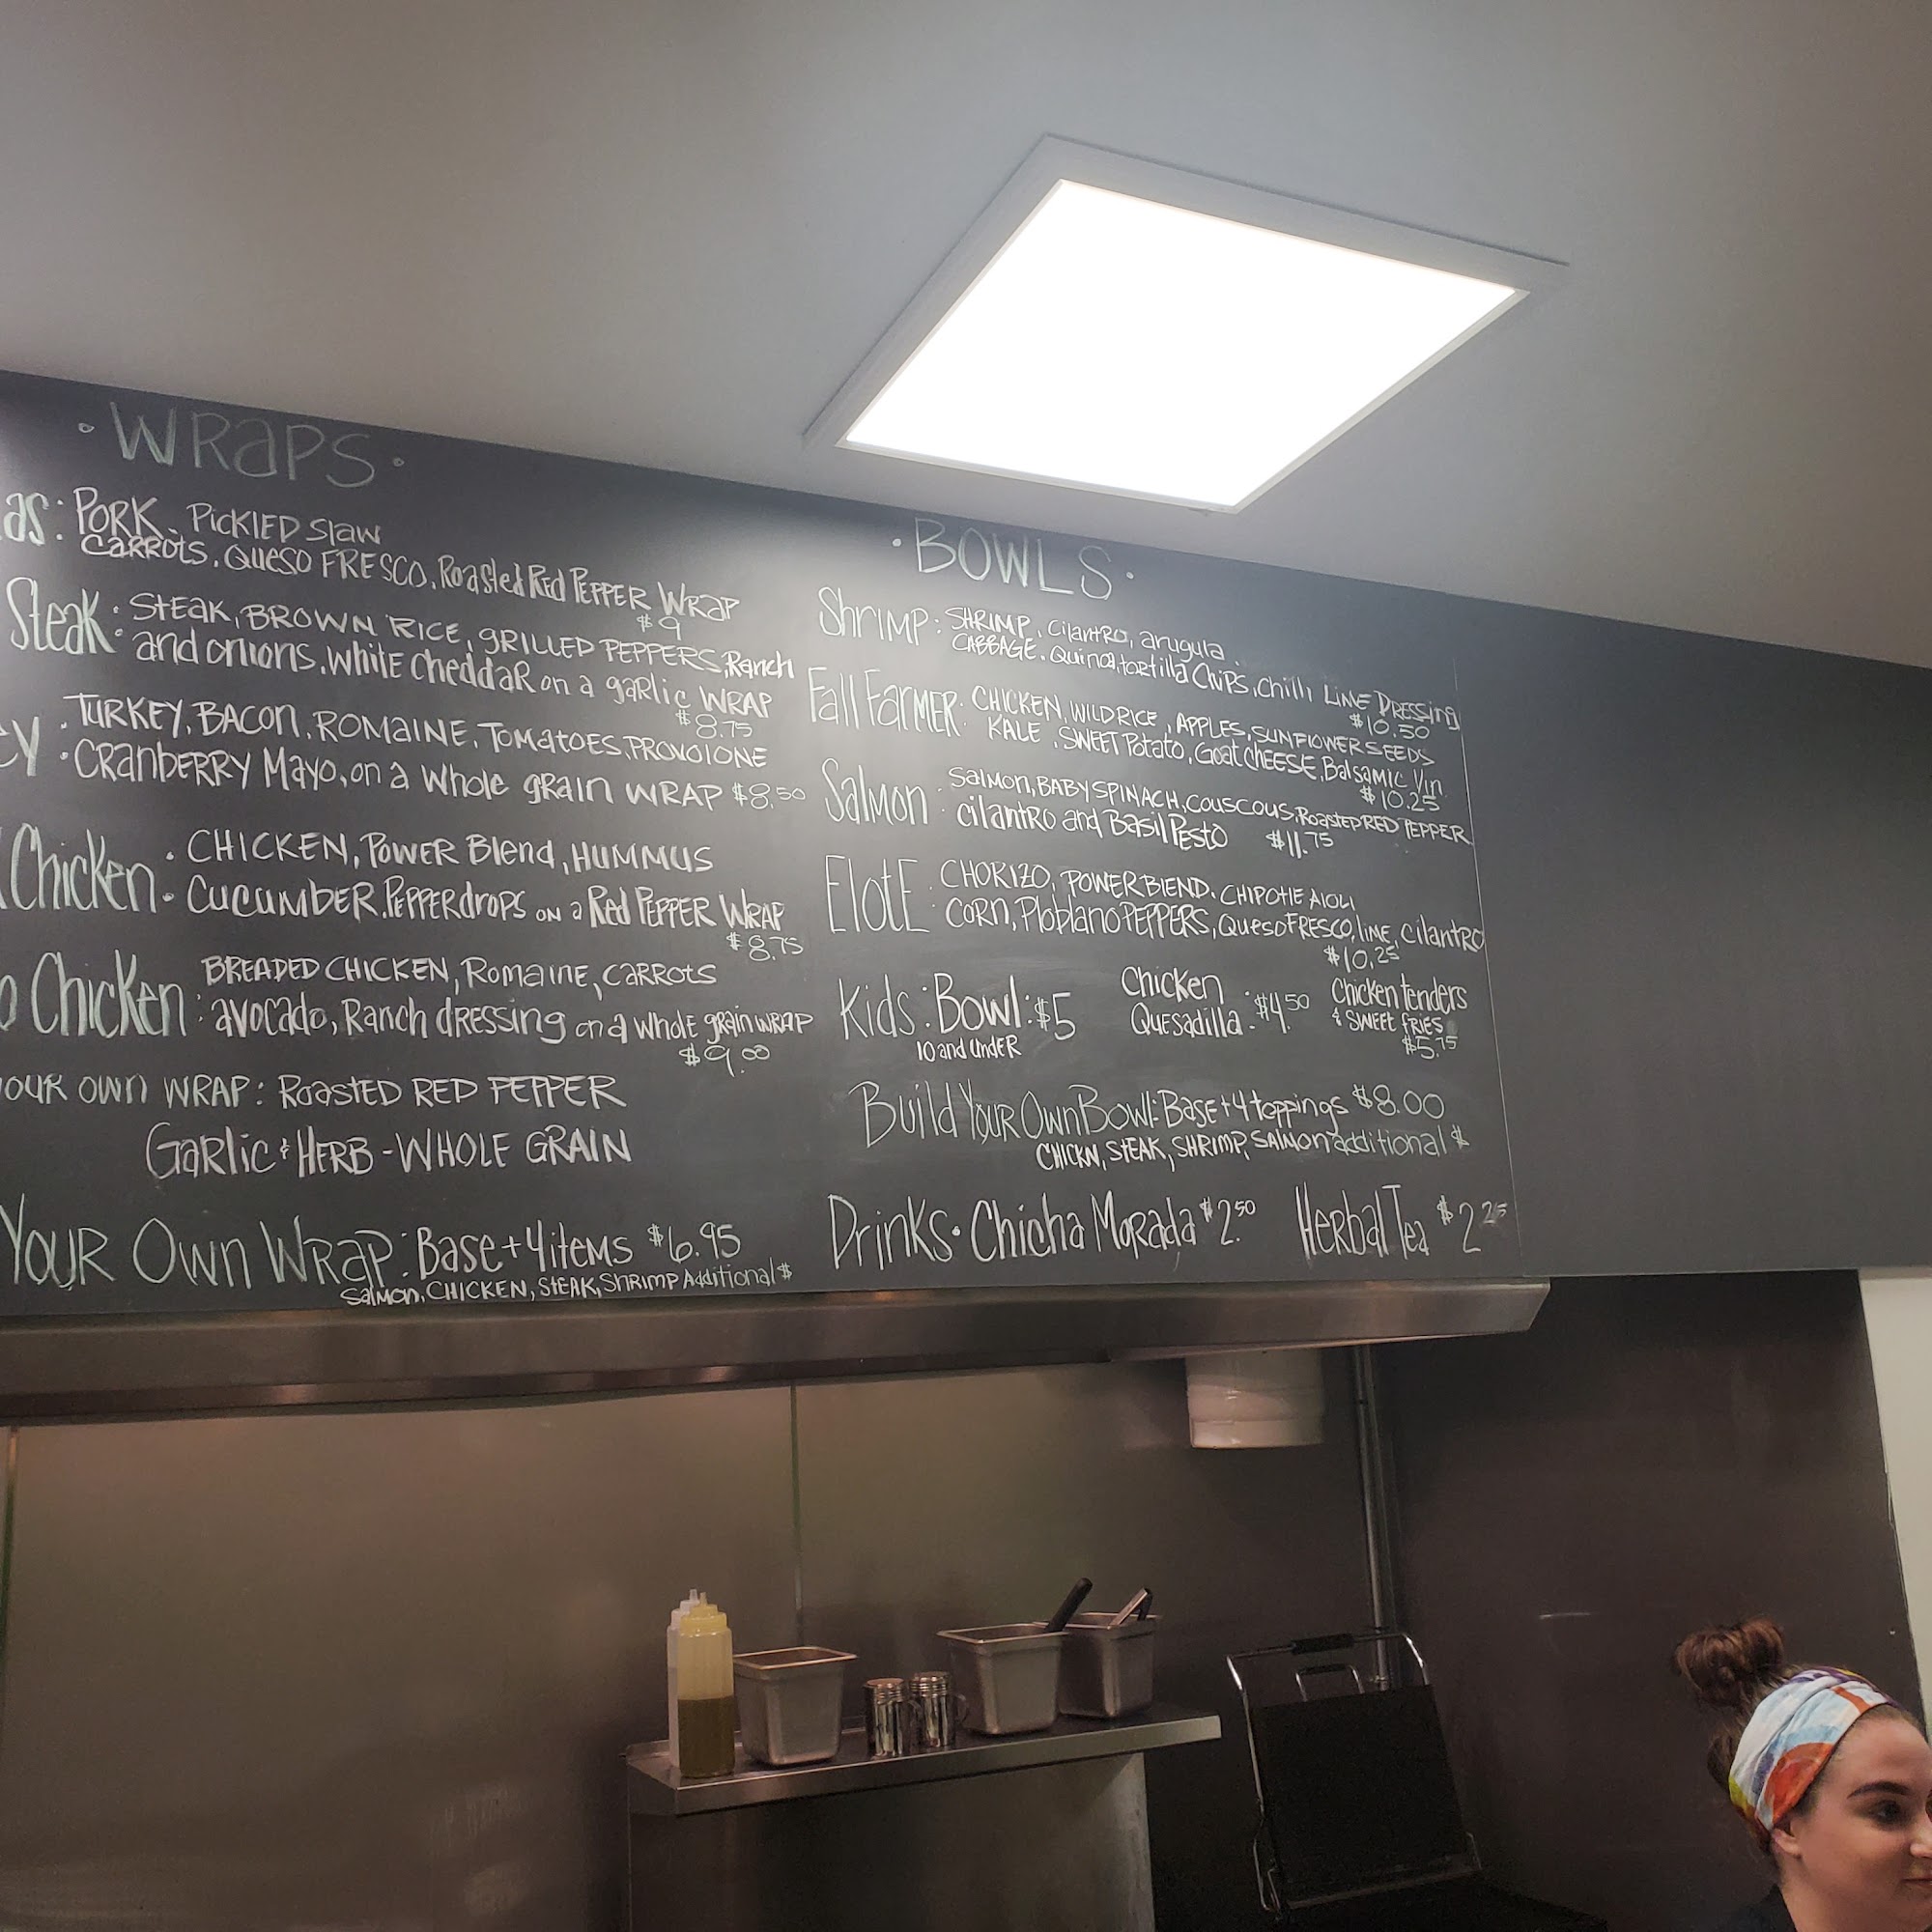 ·WRaPS·
as: PORK, PICKLED Slaw
CARROTS, QUESO FRESCO, Roasted Red PEPPER WRaP
$9
Steak: STEAK, BROWN RICE, GRILLED PEPPERS, Ranch
and onions, white CheddaR on a gaRlic WRAP
$8.75
TURKEY, BACON, ROMAINE, TOMATOES, PROVOLONE
CRANbERRY Mayo, on a whole grain WRAP $8.50
Chicken: CHICKEN, POWER Blend, HUMMUS
CUCUMBER, PEPPERdrops ON a Red PEPPER WRAP
$8.75
Chicken: BREADED CHICKEN, Romaine, CARROTS
avocado, Ranch dRESSing on a whole grain WRAP
$9.00
OUR OWN WRAP: ROASTED RED PEPPER
GaRlic & HERB - WHOLE GRAIN
YOUR OWN WRaP: Base + 4 iteMS $6.95
Salmon, CHICKEN, STEAK, SHRIMP Additional $
·BOWLS·
ShRIMP: SHRIMP, CilantRO, arugula
CABBAGE, Quinoa, tortilla CHIPS, chilli LIME DRESSING
$10.50
Fall FaRMER: CHICKEN, WILD RICE, APPLES, SUNFLOWER SEEDS
KALE, SWEET Potato, Goat CHEESE, Balsamic Vin
$10.25
Salmon: Salmon, BABY SPINACH, COUSCOUS, ROASTED RED PEPPER
cilantRO and Basil Pesto $11.75
ElotE: CHORIZO, POWER BLEND, CHIPOTLE AIOLI
CORN, Ploblano PEPPERS, Queso FRESCO, lime, cilantRO
$10.25
Kids: Bowl: $5
10 and UndeR
Chicken
Quesadilla: $4.50
Chicken tenders
& SWEET fRIES
$5.75
Build YouR Own Bowl: Base + 4 toppings $8.00
CHICKN, STEAK, SHRIMP, SALMON additional $
Drinks· Chicha Morada $2.50 Herbal Tea $2.25